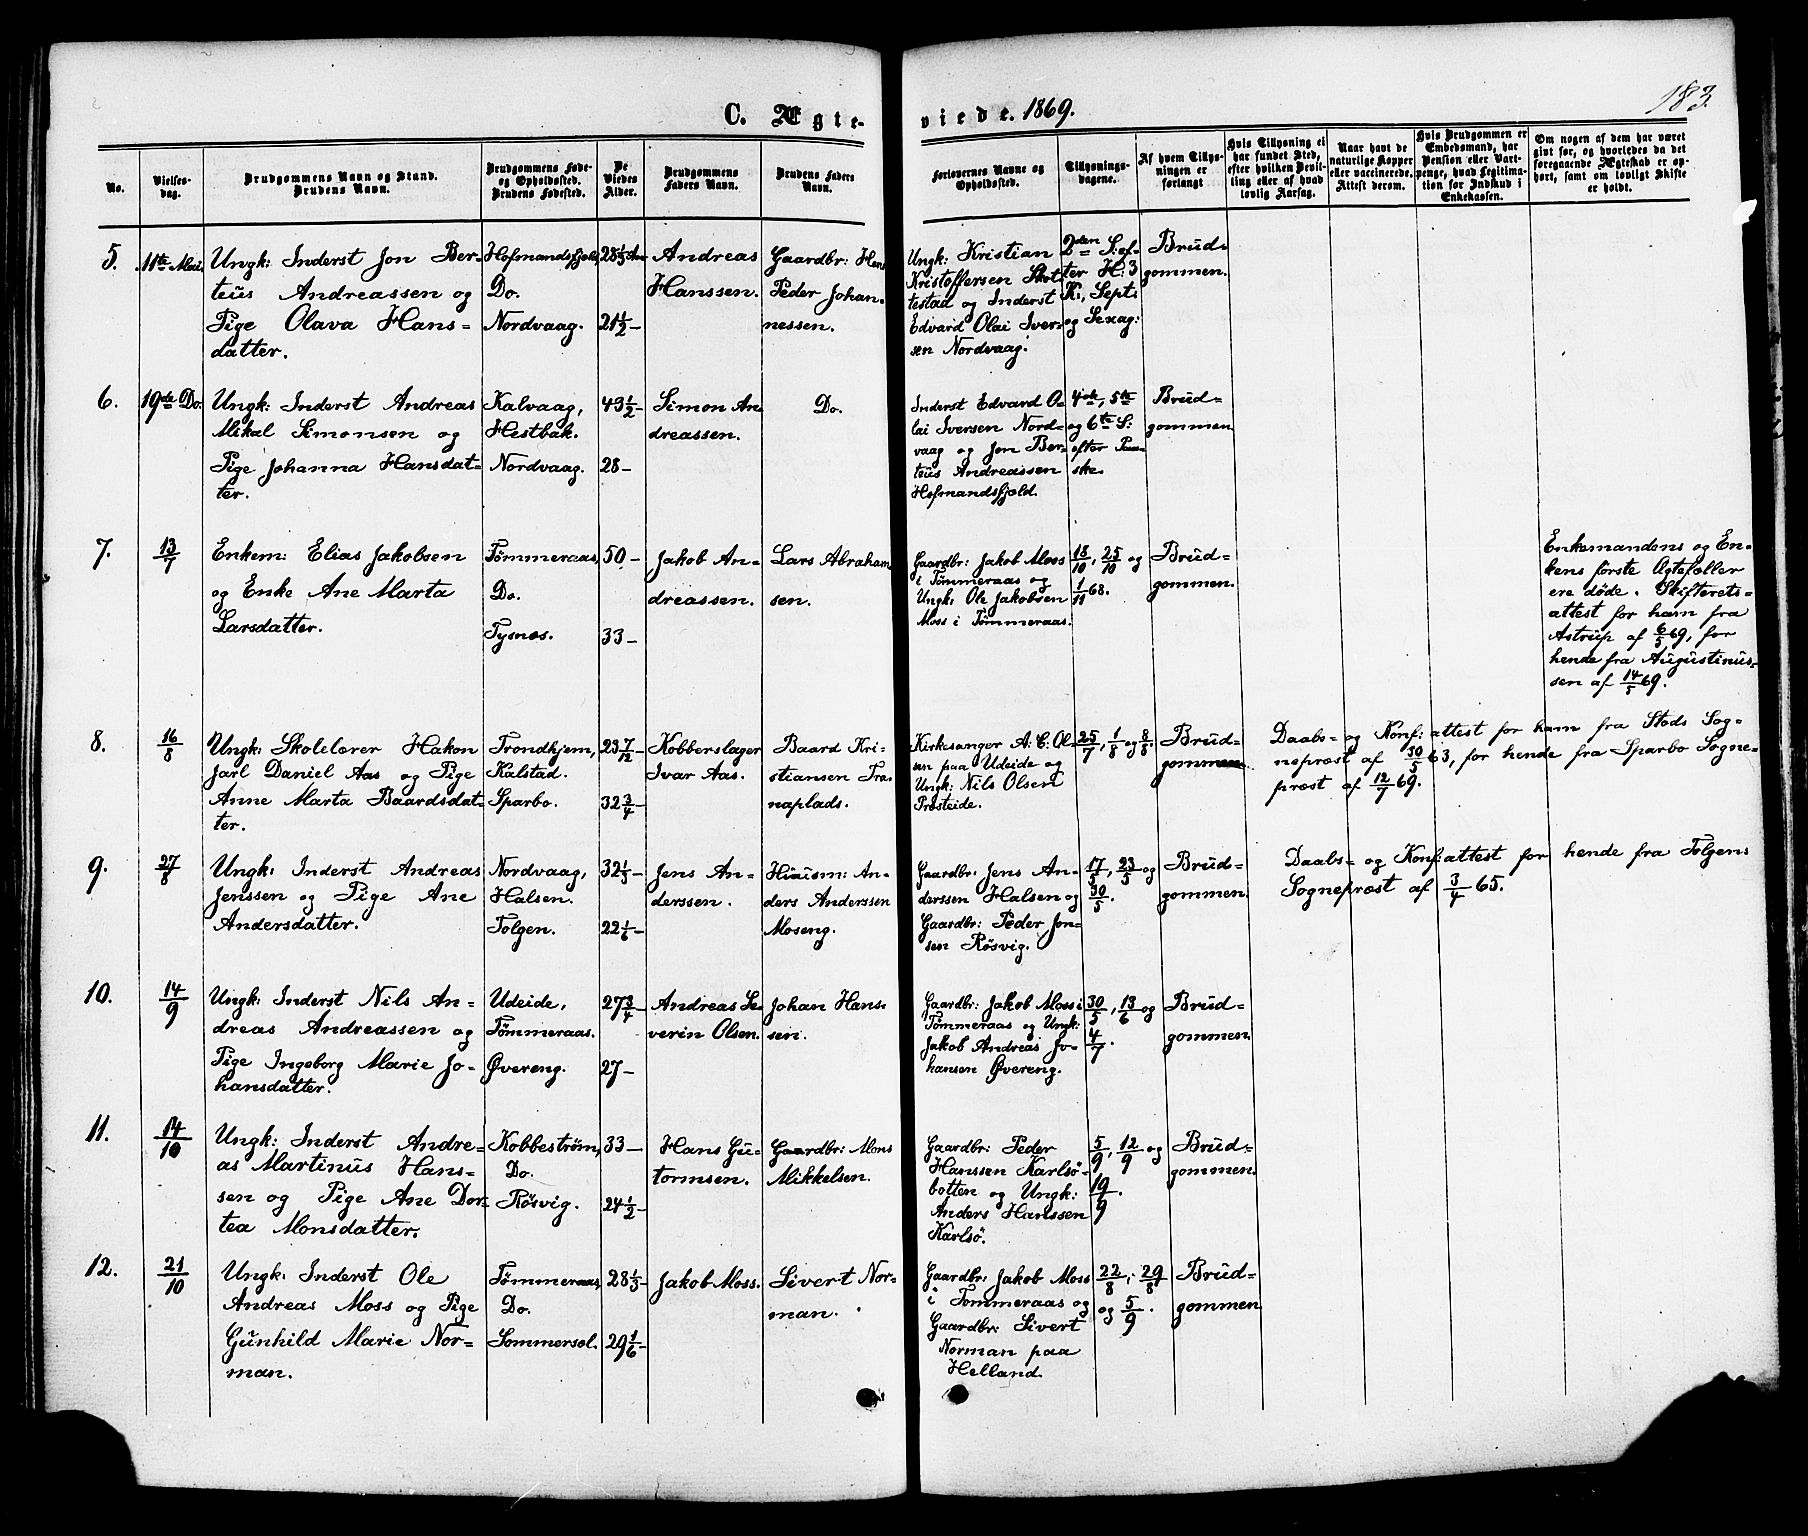 183.
C. Ægte-
viede. 1869.
No.
Vielses-
dag.
Brudgommens Navn og Stand.
Brudens Navn.
Brudgommens Føde-
og Opholdssted.
Brudens Fødested.
De
Viedes
Alder.
Brudgommens
Faders Navn.
Brudens Faders
Navn.
Forlovernes Navne og
Opholdssted.
Tillysnings-
dagene.
Af hvem Tillys-
ningen er
forlangt
Hvis Tillysning ei
har fundet Sted,
efter hvilken Bevil-
ling eller af hvad
lovlig Aarsag.
Naar havt de
naturlige Kopper
eller vaccinerede.
Attest derom.
Hvis Brudgommen er
Embedsmand, har
Pension eller Vart-
penge, hvad Legitima-
tion for Indskud i
Enkekassen.
Om nogen af dem har været
gift før, og hvorledes da det
foregaaende Ægteskab er op-
hørt, samt om lovligt Skifte
er holdt.
5.
11te Mai.
Ungk: Inderst Jon Ber-
teus Andreassen og
Pige Olava Hans-
datter.
Hofmandsfjeld,
Do.
Nordvaag.
28 1/3 Aar
21 1/2 -
Andreas
Hanssen.
Gaardbr: Hans
Peder Johan-
nessen.
Ungk: Kristian
Kristoffersen Skot-
testad og Inderst
Edvard Olai Iver-
sen Nordvaag.
2den S: ef-
ter H: 3
K:, Sept:
og Sexag:
Brud-
gommen.
6.
19de Do.
Ungk: Inderst Andreas
Mikal Simonsen og
Pige Johanna Hansdat-
ter.
Kalvaag,
Hestbak.
Nordvaag.
43 1/2 -
28 -
Simon An-
dreassen.
Do.
Inderst Edvard O-
lai Iversen Nord-
vaag og Jon Ber-
teus Andreassen
Hofmandsfjeld.
4de, 5te
og 6te S:
efter Paa-
ske.
Brud-
gommen.
7.
13/7
Enkem: Elias Jakobsen
og Enke Ane Marta
Larsdatter.
Tømmeraas,
Do.
Tysnes.
50 -
33 -
Jakob An-
dreassen.
Lars Abraham-
sen.
Gaardbr: Jakob Moss
i Tømmeraas og
Ungk: Ole Jakobsen
Moss i Tømmeraas.
18/10, 25/10 og
1/11 68.
Brud-
gommen.
Enkemandens og En-
kens første Ægtefæller
ere døde. Skifterets-
attest for ham fra
Astrup af 6/5 69, for
hende fra Augustinus-
sen af 14/5 69.
8.
16/8
Ungk: Skolelærer Hakon
Jarl Daniel Aas og Pige
Anne Marta Baardsdat-
ter.
Trondhjem,
Kalstad.
Sparbo.
23 7/12 -
32 3/4 -
Kobberslager
Ivar Aas.
Baard Kri-
stiansen Tra-
naplads.
Kirkesanger A: C: Ol-
sen paa Udeide og
Ungk: Nils Olsen
Prøsteide.
25/7, 1/8 og 8/8.
Brud-
gommen.
Daabs- og Konf: attest for ham fra Stods Sog-
nepræst af 30/5 63, for hende fra Sparbo Sogne-
præst af 12/7 69.
9.
27/8
Ungk: Inderst Andreas
Jenssen og Pige Ane
Andersdatter.
Nordvaag,
Halsen.
Tolgen.
32 1/3 -
22 1/6 -
Jens An-
derssen.
Huusm: An-
ders Anderssen
Moseng.
Gaardbr: Jens An-
derssen Halsen og
Gaardbr: Peder Jon-
sen Røsvig.
17/5, 23/5 og
30/5.
Brud-
gommen.
Daabs- og Konf:attest for hende fra Tolgens
Sognepræst af 3/4 65.
10.
14/9
Ungk: Inderst Nils An-
dreas Andreassen og
Pige Ingeborg Marie Jo-
hansdatter.
Udeide,
Tømmeraas.
Øvereng.
27 3/4 -
27 -
Andreas Se-
verin Olsen.
Johan Hans-
sen.
Gaardbr: Jakob Moss i
Tømmeraas og Ungk:
Jakob Andreas Jo-
hansen Øvereng.
30/5, 13/6 og
4/7.
Brud-
gommen.
11.
14/10
Ungk: Inderst Andre-
as Martinus Hans-
sen og Pige Ane Dor-
tea Monsdatter.
Kobbestrøm,
Do.
Røsvig.
33 -
24 1/2 -
Hans Gu-
tormsen.
Gaardbr: Mons
Mikkelsen.
Gaardbr: Peder
Hanssen Karlsø-
botten og Ungk:
Anders Hanssen
Karlsø.
5/9, 12/9 og
19/9.
Brud-
gommen.
12.
21/10
Ungk: Inderst Ole
Andreas Moss og Pige
Gunhild Marie Nor-
man.
Tømmeraas,
Do.
Sommersel.
28 1/3 -
29 1/6 -
Jakob Moss.
Sivert Nor-
man.
Gaardbr: Jakob Moss
i Tømmeraas og
Gaardbr: Sivert
Norman paa
Helland.
22/8, 29/8
og 5/9.
Brud-
gommen.